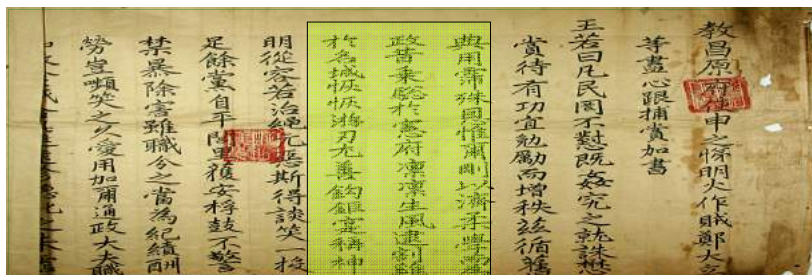 教昌原府使申之悌明火作賊鄭大
等盡心跟捕賞加書
王若曰凡民罔不懟既姦宄之就誅懋
賞待有功宜勉勵而增秩玆循舊
典用霈殊恩惟爾剛以濟柔學而
政昔乘驄於憲府凜凜生風逮剖
於名城恢恢游刃尤善鉤鉅宜稱神
明從容若治繩元惡斯得談笑一投
足餘黨自平閭里獲安桴鼓不警
禁暴除害雖職分之當為紀績酬
勞豈嚬笑之久愛用加爾通政大夫職